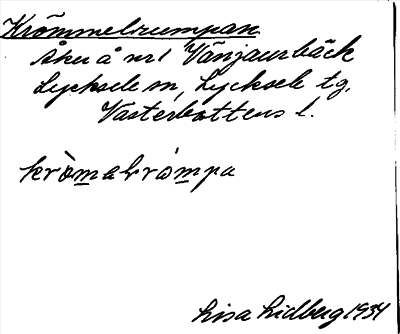 Krömmelrumpan
Åker å nr 1 Vänjaurbäck
Lycksele sn, Lycksele tg,
Västerbottens l.
Lisa Lidberg 1934